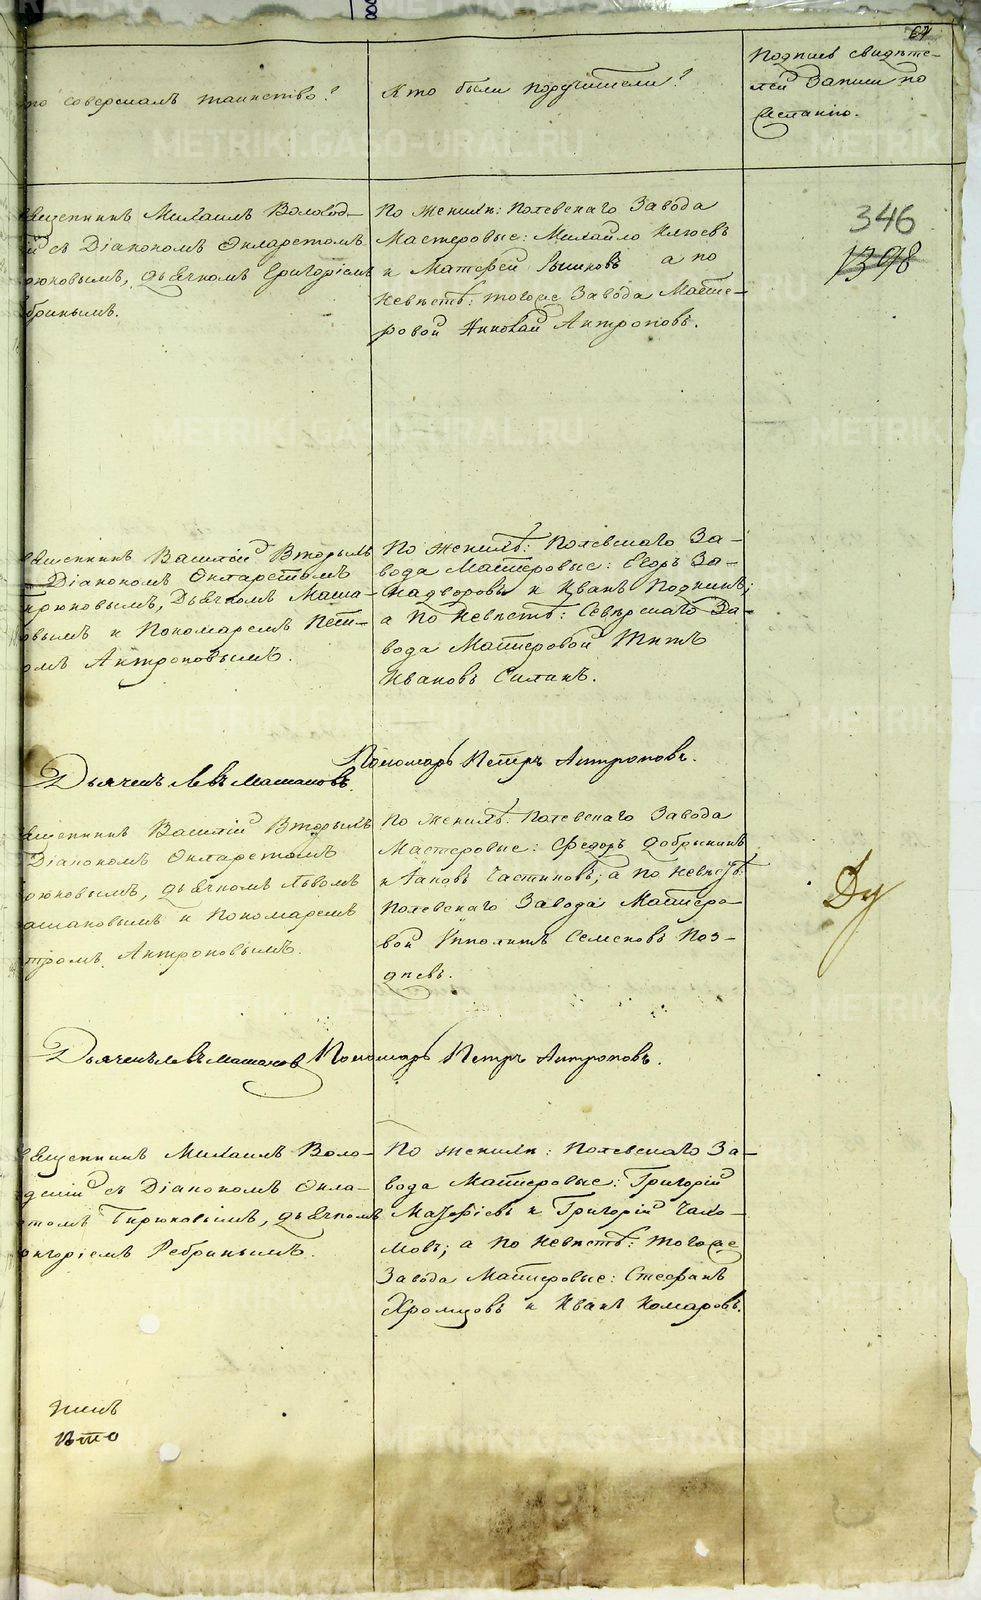 67
то совершалъ таинство?
Кто были поручители?
Подпись свидѣте-
лей записи по
желанію.
346
1398
Священникъ Михаилъ Волод-
й съ Діакономъ Филаретомъ
рюковымъ, дьячкомъ Григоріемъ
бринымъ.
По женихѣ: Полевскаго Завода
Мастеровые: Михайло Клюевъ
и Матѳей а по
невѣстѣ: тогоже Завода Масте-
ровой Николай Антроповъ.
священникъ Василій Вторымъ
Діакономъ Филаретомъ
ирюковымъ, Дьячкомъ Маша-
овымъ и Пономаремъ Пет-
омъ Антроповымъ.
По женихѣ: Полевскаго За-
вода Мастеровые: Егоръ За-
надворовъ и Иванъ Поднинъ;
а по невѣстѣ: Северскаго За-
вода Мастеровой Титъ
Ивановъ Силинъ.
Дьячекъ Левъ Машановъ.
Пономарь Петръ Антроповъ.
ященникъ Василій Вторымъ
Діакономъ Филаретомъ
рюковымъ, дьячкомъ Львомъ
ашановымъ и Пономаремъ
тромъ Антроповымъ.
По женихѣ: Полевскаго Завода
Мастеровые: Ѳедоръ Добрынинъ
и Іаковъ Частиковъ; а по невѣстѣ:
Полевскаго Завода Мастеро-
вой Ипполитъ Семеновъ Поз-
дневъ.
Ду
Дьячекъ Левъ Машановъ
Пономарь Петръ Антроповъ.
священникъ Михаилъ Воло-
дскій съ Діакономъ Фила-
томъ Бирюковымъ, дьячкомъ
игоріемъ Ребринымъ.
По женихѣ: Полевскаго За-
вода Мастеровые: Григорій
Маѳіевъ и Григорій Чахо-
мовъ; а по невѣстѣ: тогоже
Завода Мастеровые: Стефанъ
Хромцовъ и Иванъ Комаровъ.
METRIKI.GASO-URAL.RU